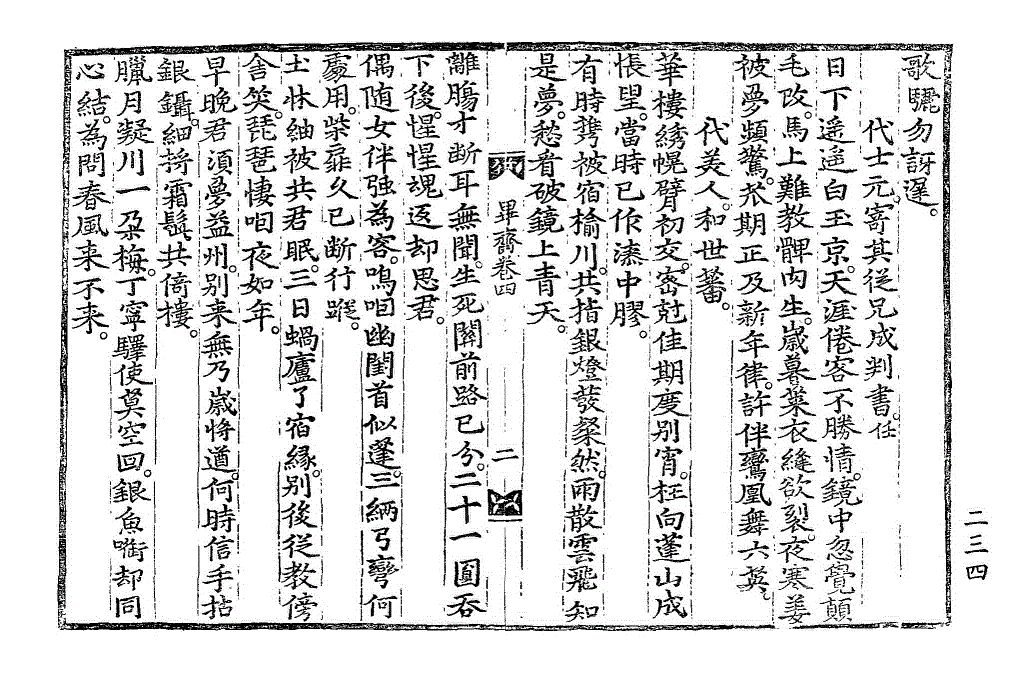 歌驪勿訝遲。
代士元。寄其從兄成判書。任
日下遥遥白玉京。天涯倦客不勝情。鏡中忽覺顛
毛改。馬上難教髀肉生。歲暮葉衣縫欲裂。夜寒姜
被夢頻驚。㳟期正及新年律。許伴鸞凰舞六英。
代美人。和世蕃。
華樓綉幌臂初交。密尅佳期度別宵。枉向蓬山成
悵望。當時已作溱中膠。
有時携被宿榆川。共指銀燈發粲然。雨散雲飛知
是夢。愁看破鏡上青天。
畢齋卷四
二
離膓才斷耳無聞。生死關前路已分。二十一圓吞
下後。惺惺魂返却思君。
偶随女伴强為容。鳴咽幽閨首似蓬。三納弓彎何
處用。柴扉久已斷行蹤。
土牀紬被共君眠。三日蝸廬了宿緣。別後從教傍
舍笑。琵琶悽咽夜如年。
早晚君湏夢益州。別来無乃歲将遒。何時信手拈
銀鑷。細捋霜鬚共倚樓。
臘月凝川一朶梅。丁寧驛使莫空回。銀魚㗸却同
心結。為問春風来不来。
二三四